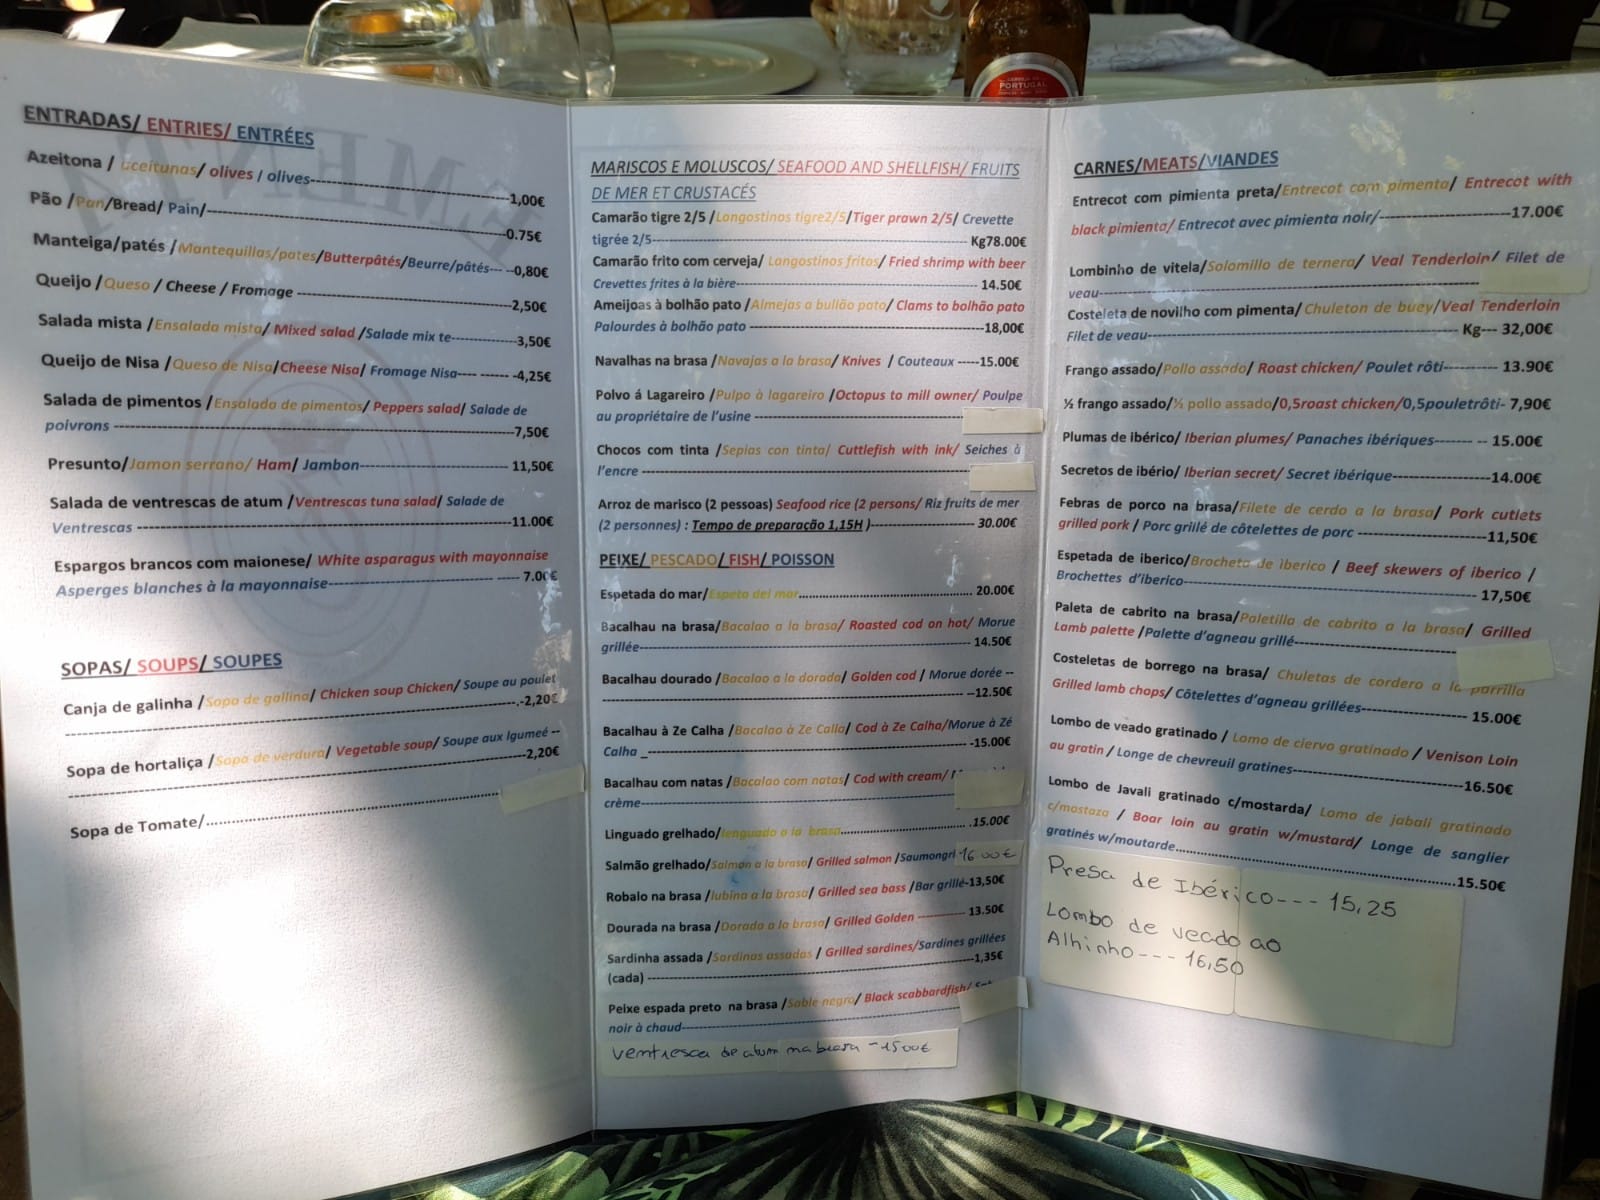 CERVEJA DE
PORTUGAL
ENTRADAS/ ENTRIES/ ENTRÉES
Azeitona / aceitunas/ olives / olives-----1,00€
Pão /Pan/Bread/ Pain/-----0.75€
Manteiga/patés /Mantequillas/pates/Butterpâtés/Beurre/pâtés--- --0,80€
Queijo /Queso / Cheese / Fromage -----2,50€
Salada mista /Ensalada mista/ Mixed salad /Salade mix te-----3,50€
Queijo de Nisa /Queso de Nisa/Cheese Nisa/ Fromage Nisa---- ------ -4,25€
Salada de pimentos /Ensalada de pimentos/ Peppers salad/ Salade de
poivrons -----7,50€
Presunto/Jamon serrano/ Ham/ Jambon----- 11,50€
Salada de ventrescas de atum /Ventrescas tuna salad/ Salade de
Ventrescas -----11.00€
Espargos brancos com maionese/ White asparagus with mayonnaise
Asperges blanches à la mayonnaise----- ---- 7.00€
SOPAS/ SOUPS/ SOUPES
Canja de galinha /Sopa de gallina/ Chicken soup Chicken/ Soupe au poulet
-----.-2,20€
Sopa de hortaliça /Sopa de verdura/ Vegetable soup/ Soupe aux lgumeé --
-----2,20€
Sopa de Tomate/.....
MARISCOS E MOLUSCOS/ SEAFOOD AND SHELLFISH/ FRUITS
DE MER ET CRUSTACÉS
Camarão tigre 2/5 /Langostinos tigre2/5/Tiger prawn 2/5/ Crevette
tigrée 2/5----- Kg78.00€
Camarão frito com cerveja/ Langostinos fritos/ Fried shrimp with beer
Crevettes frites à la bière----- 14.50€
Ameijoas à bolhão pato /Almejas a bullão pato/ Clams to bolhão pato
Palourdes à bolhão pato -----18,00€
Navalhas na brasa /Navajas a la brasa/ Knives / Couteaux -----15.00€
Polvo á Lagareiro /Pulpo à lagareiro /Octopus to mill owner/ Poulpe
au propriétaire de l'usine -----
Chocos com tinta /Sepias con tinta/ Cuttlefish with ink/ Seiches à
l'encre -----
Arroz de marisco (2 pessoas) Seafood rice (2 persons/ Riz fruits de mer
(2 personnes) : Tempo de preparação 1,15H )----- 30.00€
PEIXE/ PESCADO/ FISH/ POISSON
Espetada do mar/Espeta del mar..... 20.00€
Bacalhau na brasa/Bacalao a la brasa/ Roasted cod on hot/ Morue
grillée----- 14.50€
Bacalhau dourado /Bacalao a la dorada/ Golden cod / Morue dorée --
----- –12.50€
Bacalhau à Ze Calha /Bacalao à Ze Calla/ Cod à Ze Calha/Morue à Zé
Calha _----- -15.00€
Bacalhau com natas /Bacalao com natas/ Cod with cream/
crème-----
Linguado grelhado/lenguado a la brasa..... .15.00€
Salmão grelhado/Salmon a la brasa/ Grilled salmon /Saumongri 16 00€
Robalo na brasa /lubina a la brasa/ Grilled sea bass /Bar grillé-13,50€
Dourada na brasa /Dorada a la brasa/ Grilled Golden ----- 13.50€
Sardinha assada /Sardinas assadas / Grilled sardines/Sardines grillées
(cada) -----1,35€
Peixe espada preto na brasa /Sable negro/ Black scabbardfish/
noir à chaud-----
Ventresca de atum na brasa - 15 00€
CARNES/MEATS/VIANDES
Entrecot com pimienta preta/Entrecot com pimenta/ Entrecot with
black pimienta/ Entrecot avec pimienta noir/-----17.00€
Lombinho de vitela/Solomillo de ternera/ Veal Tenderloin/ Filet de
veau-----
Costeleta de novilho com pimenta/ Chuleton de buey/Veal Tenderloin
Filet de veau----- Kg--- 32,00€
Frango assado/Pollo assado/ Roast chicken/ Poulet rôti---------- 13.90€
½ frango assado/½ pollo assado/0,5roast chicken/0,5pouletrôti- 7,90€
Plumas de ibérico/ Iberian plumes/ Panaches ibériques------- -- 15.00€
Secretos de ibério/ Iberian secret/ Secret ibérique-----14.00€
Febras de porco na brasa/Filete de cerdo a la brasa/ Pork cutlets
grilled pork / Porc grillé de côtelettes de porc -----11,50€
Espetada de iberico/Brocheta de iberico / Beef skewers of iberico /
Brochettes d'iberico----- 17,50€
Paleta de cabrito na brasa/Paletilla de cabrito a la brasa/ Grilled
Lamb palette /Palette d'agneau grillé-----
Costeletas de borrego na brasa/ Chuletas de cordero a la parrilla
Grilled lamb chops/ Côtelettes d'agneau grillées----- 15.00€
Lombo de veado gratinado / Lomo de ciervo gratinado / Venison Loin
au gratin / Longe de chevreuil gratines-----16.50€
Lombo de Javali gratinado c/mostarda/ Lomo de jabali gratinado
c/mostaza / Boar loin au gratin w/mustard/ Longe de sanglier
gratinés w/moutarde.....15.50€
Presa de Ibérico--- 15,25
Lombo de veado ao
Alhinho--- 16,50